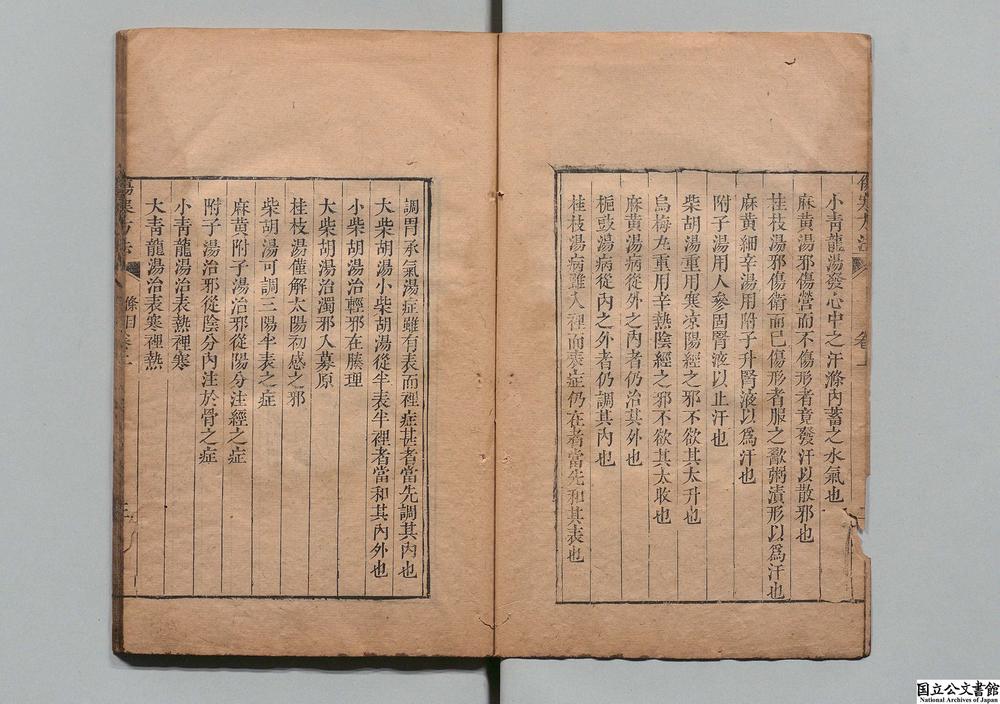 小青龍湯發心中之汗滌內蓄之水氣也
麻黃湯邪傷營而不傷形者竟發汗以散邪也
桂枝湯邪傷衛而已傷形者服之歠粥漬形以爲汗也
麻黃細辛湯用附子升腎液以爲汗也
附子湯用人參固腎液以止汗也
柴胡湯重用寒凉陽經之邪不欲其太升也
烏梅丸重用辛熱陰經之邪不欲其太收也
麻黃湯病從外之內者仍治其外也
梔豉湯病從內之外者仍調其內也
桂枝湯病雖入裡而表症仍在者當先和其表也
調胃承氣湯症雖有表而裡症甚者當先調其內也
大柴胡湯小柴胡湯從半表半裡者當和其內外也
小柴胡湯治輕邪在腠理
大柴胡湯治濁邪入募原
桂枝湯僅解太陽初感之邪
柴胡湯可調三陽半表之症
麻黃附子湯治邪從陽分注經之症
附子湯治邪從陰分內注於骨之症
小青龍湯治表熱裡寒
大青龍湯治表寒裡熱
傷寒方法
條目卷上
国立公文書館
National Archives of Japan